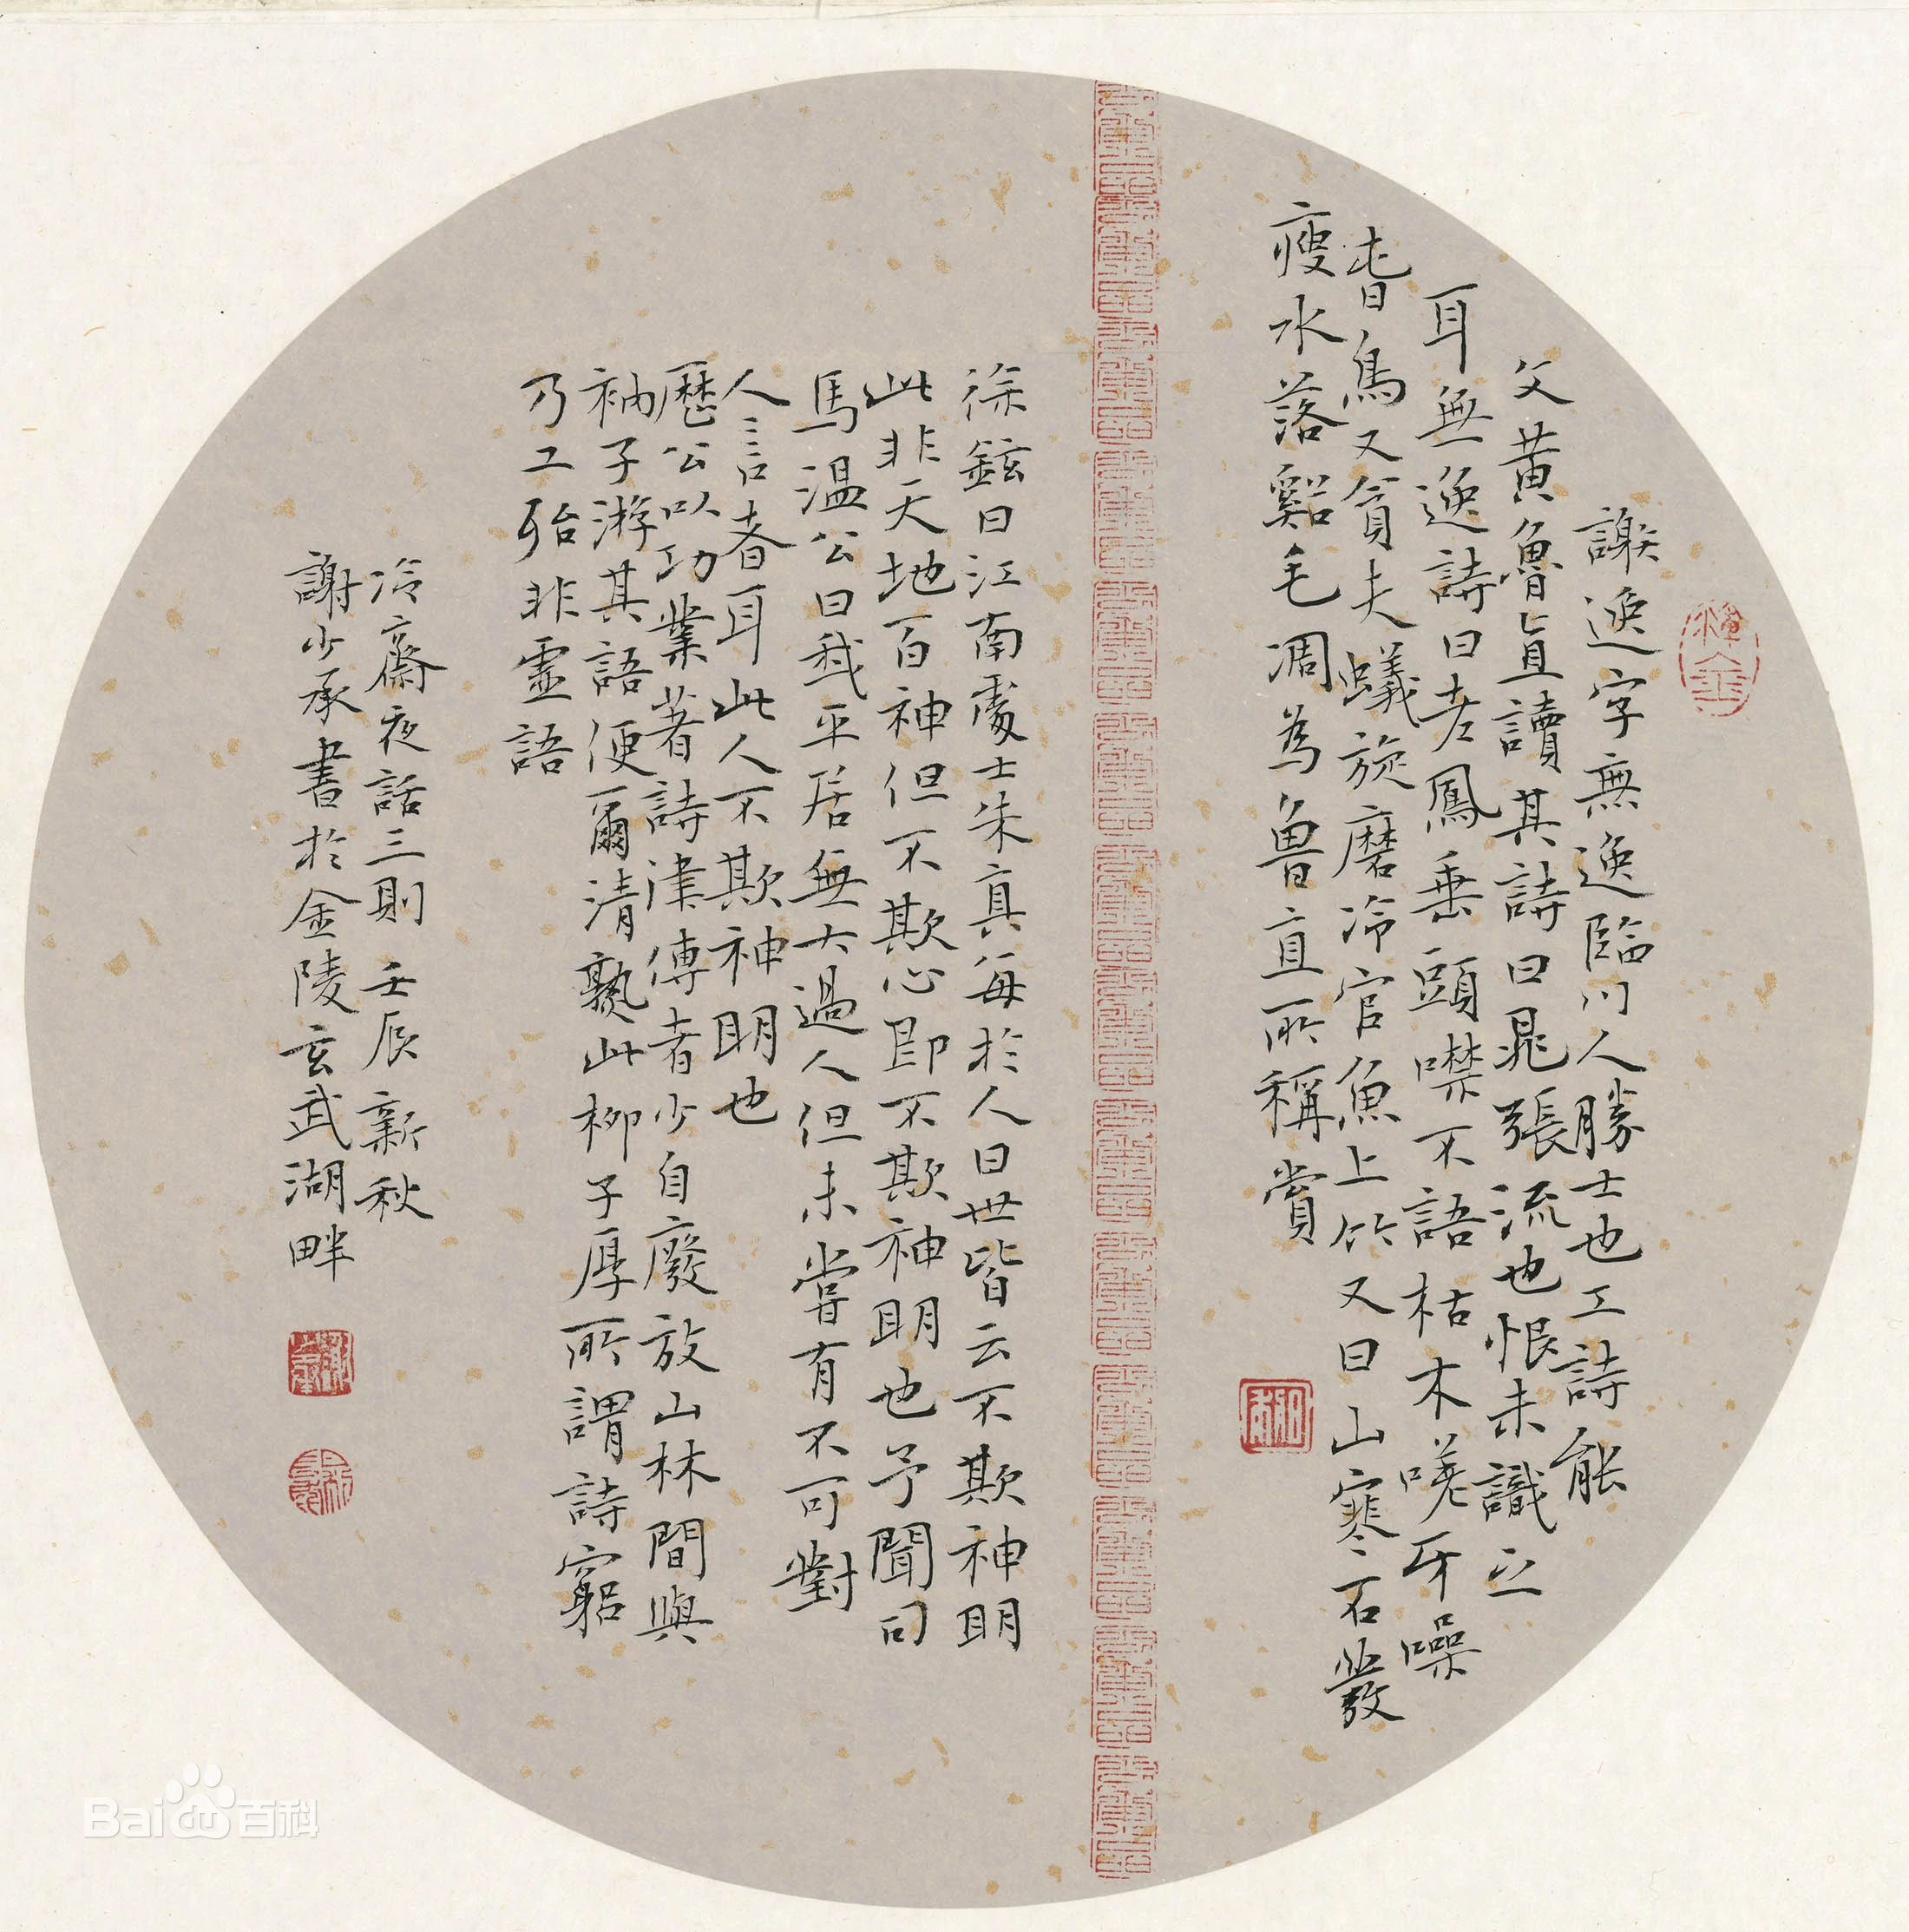 謝逸字無逸臨川人勝士也工詩能
文黃魯直讀其詩曰晁張流也恨未識之
耳無逸詩曰老鳳垂頭噤不語枯木槎牙噪
春鳥又貪夫蟻旋磨冷官魚上竹又曰山寒石髮
瘦水落谿毛凋為魯直所稱賞
徐鉉曰江南處士朱真每於人曰世皆云不欺神明
此非天地百神但不欺心即不欺神明也予聞司
馬溫公曰我平居無大過人但未嘗有不可對
人言者耳此人不欺神明也
歷公以功業著詩律傳者少自廢放山林間與
衲子游其語便爾清熟此柳子厚所謂詩窮
乃工殆非靈語
冷齋夜話三則 壬辰新秋
謝少承書於金陵玄武湖畔
Bai 百科